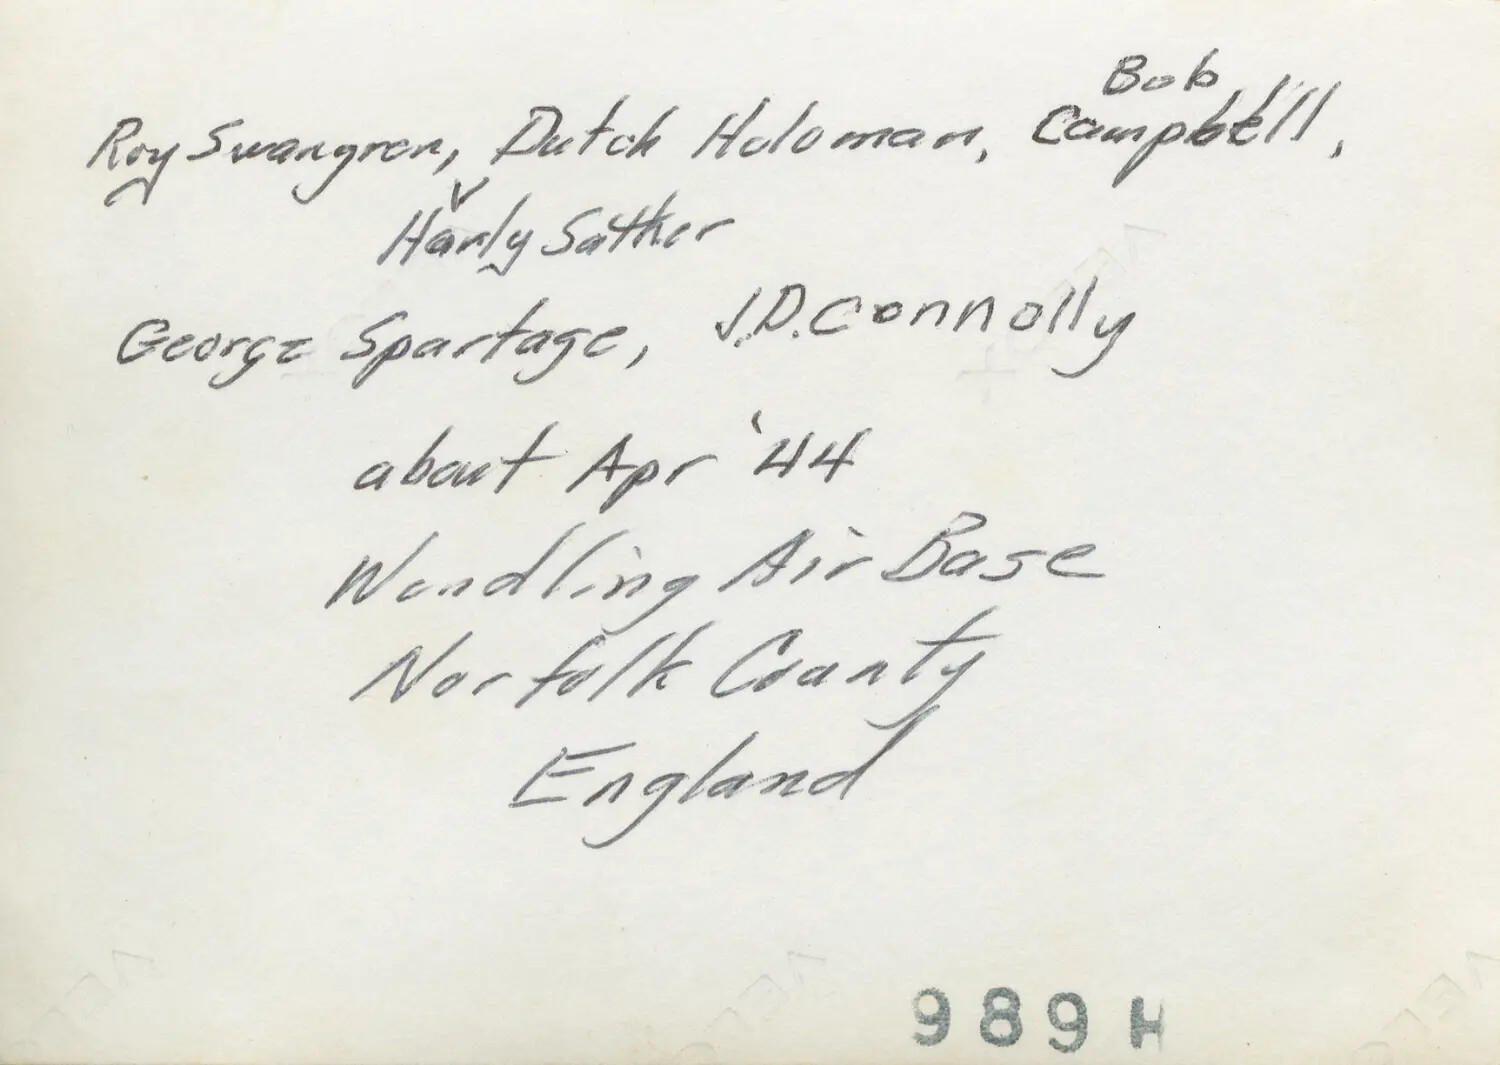 Bob
Roy Swangren, Dutch Holoman, Campbell,
Harly Sather
George Spartage, J.D. Connolly
about Apr '44
Wendling Air Base
Norfolk County
England
989H